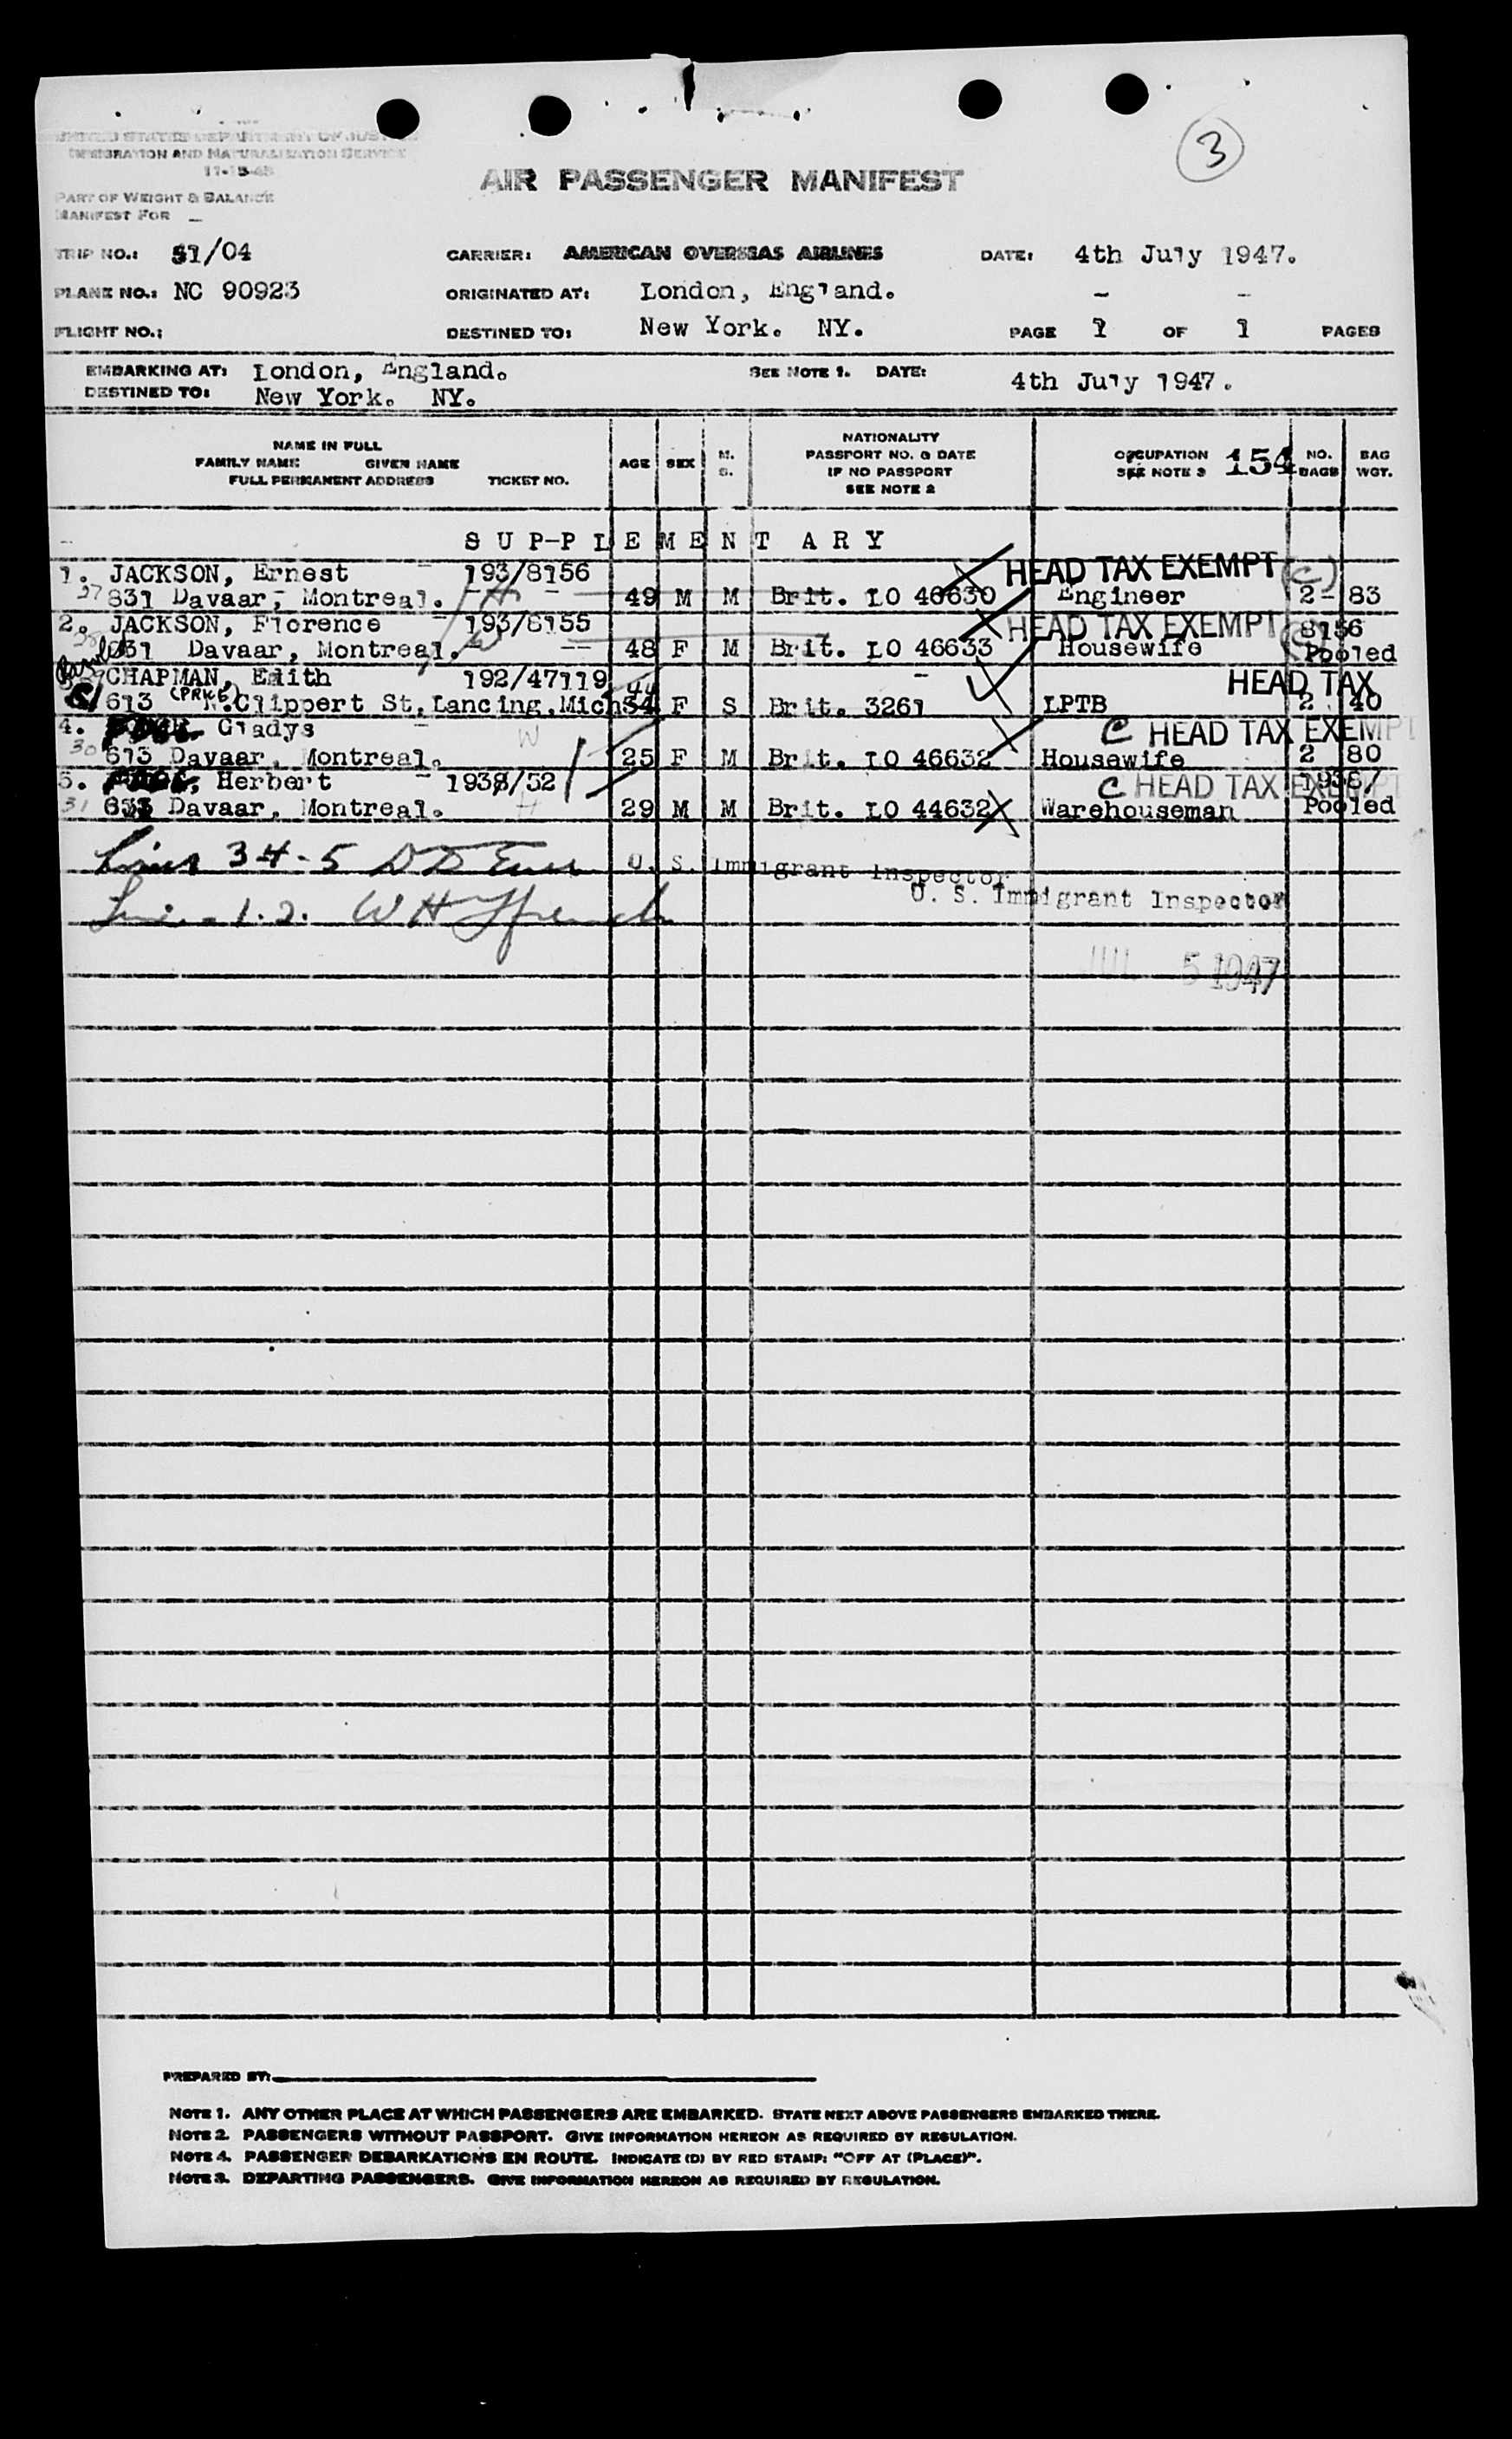 3
UNITED STATES DEPARTMENT OF JUSTICE
IMMIGRATION AND NATURALIZATION SERVICE
11-15-45
AIR PASSENGER MANIFEST
PART OF WEIGHT & BALANCE
MANIFEST FOR
TRIP NO.: 51/04 CARRIER: AMERICAN OVERSEAS AIRLINES DATE: 4th July 1947.
PLANE NO.: NC 90923 ORIGINATED AT: London, England. - -
FLIGHT NO.: DESTINED TO: New York. NY. PAGE 1 OF 1 PAGES
EMBARKING AT: London, England. SEE NOTE 1. DATE: 4th July 1947.
DESTINED TO: New York. NY.
NAME IN FULL
FAMILY NAME GIVEN NAME
FULL PERMANENT ADDRESS TICKET NO.
AGE SEX M. S.
NATIONALITY
PASSPORT NO. & DATE
IF NO PASSPORT
SEE NOTE 2
OCCUPATION
SEE NOTE 3 154
NO. BAGS
BAG WGT.
S U P-P L E M E N T A R Y
1. JACKSON, Ernest 193/8156 HEAD TAX EXEMPT (C)
27 831 Davaar, Montreal. H 49 M M Brit. LO 46630 Engineer 2- 83
2. JACKSON, Florence 193/8155 HEAD TAX EXEMPT 8156
831 Davaar, Montreal. W 48 F M Brit. LO 46633 Housewife Pooled
CHAPMAN, Edith 192/47119 44 HEAD TAX
613 (PRICE) N.Clippert St, Lancing, Mich 34 F S Brit. 3261 LPTB 2 40
4. Gladys W C HEAD TAX EXEMPT
30 613 Davaar, Montreal. 25 F M Brit. LO 46632 Housewife 2 80
5. Herbert 1938/52 C HEAD TAX EXEMPT 1938/
31 633 Davaar, Montreal. H 29 M M Brit. LO 44632 Warehouseman Pooled
Lines 3 4-5 U. S. Immigrant Inspector
Line 1.2. W H Ffrench U. S. Immigrant Inspector
JUL 5 1947
PREPARED BY:
NOTE 1. ANY OTHER PLACE AT WHICH PASSENGERS ARE EMBARKED. STATE NEXT ABOVE PASSENGERS EMBARKED THERE.
NOTE 2. PASSENGERS WITHOUT PASSPORT. GIVE INFORMATION HEREON AS REQUIRED BY REGULATION.
NOTE 4. PASSENGER DEBARKATIONS EN ROUTE. INDICATE (D) BY RED STAMP: "OFF AT (PLACE)".
NOTE 3. DEPARTING PASSENGERS. GIVE INFORMATION HEREON AS REQUIRED BY REGULATION.